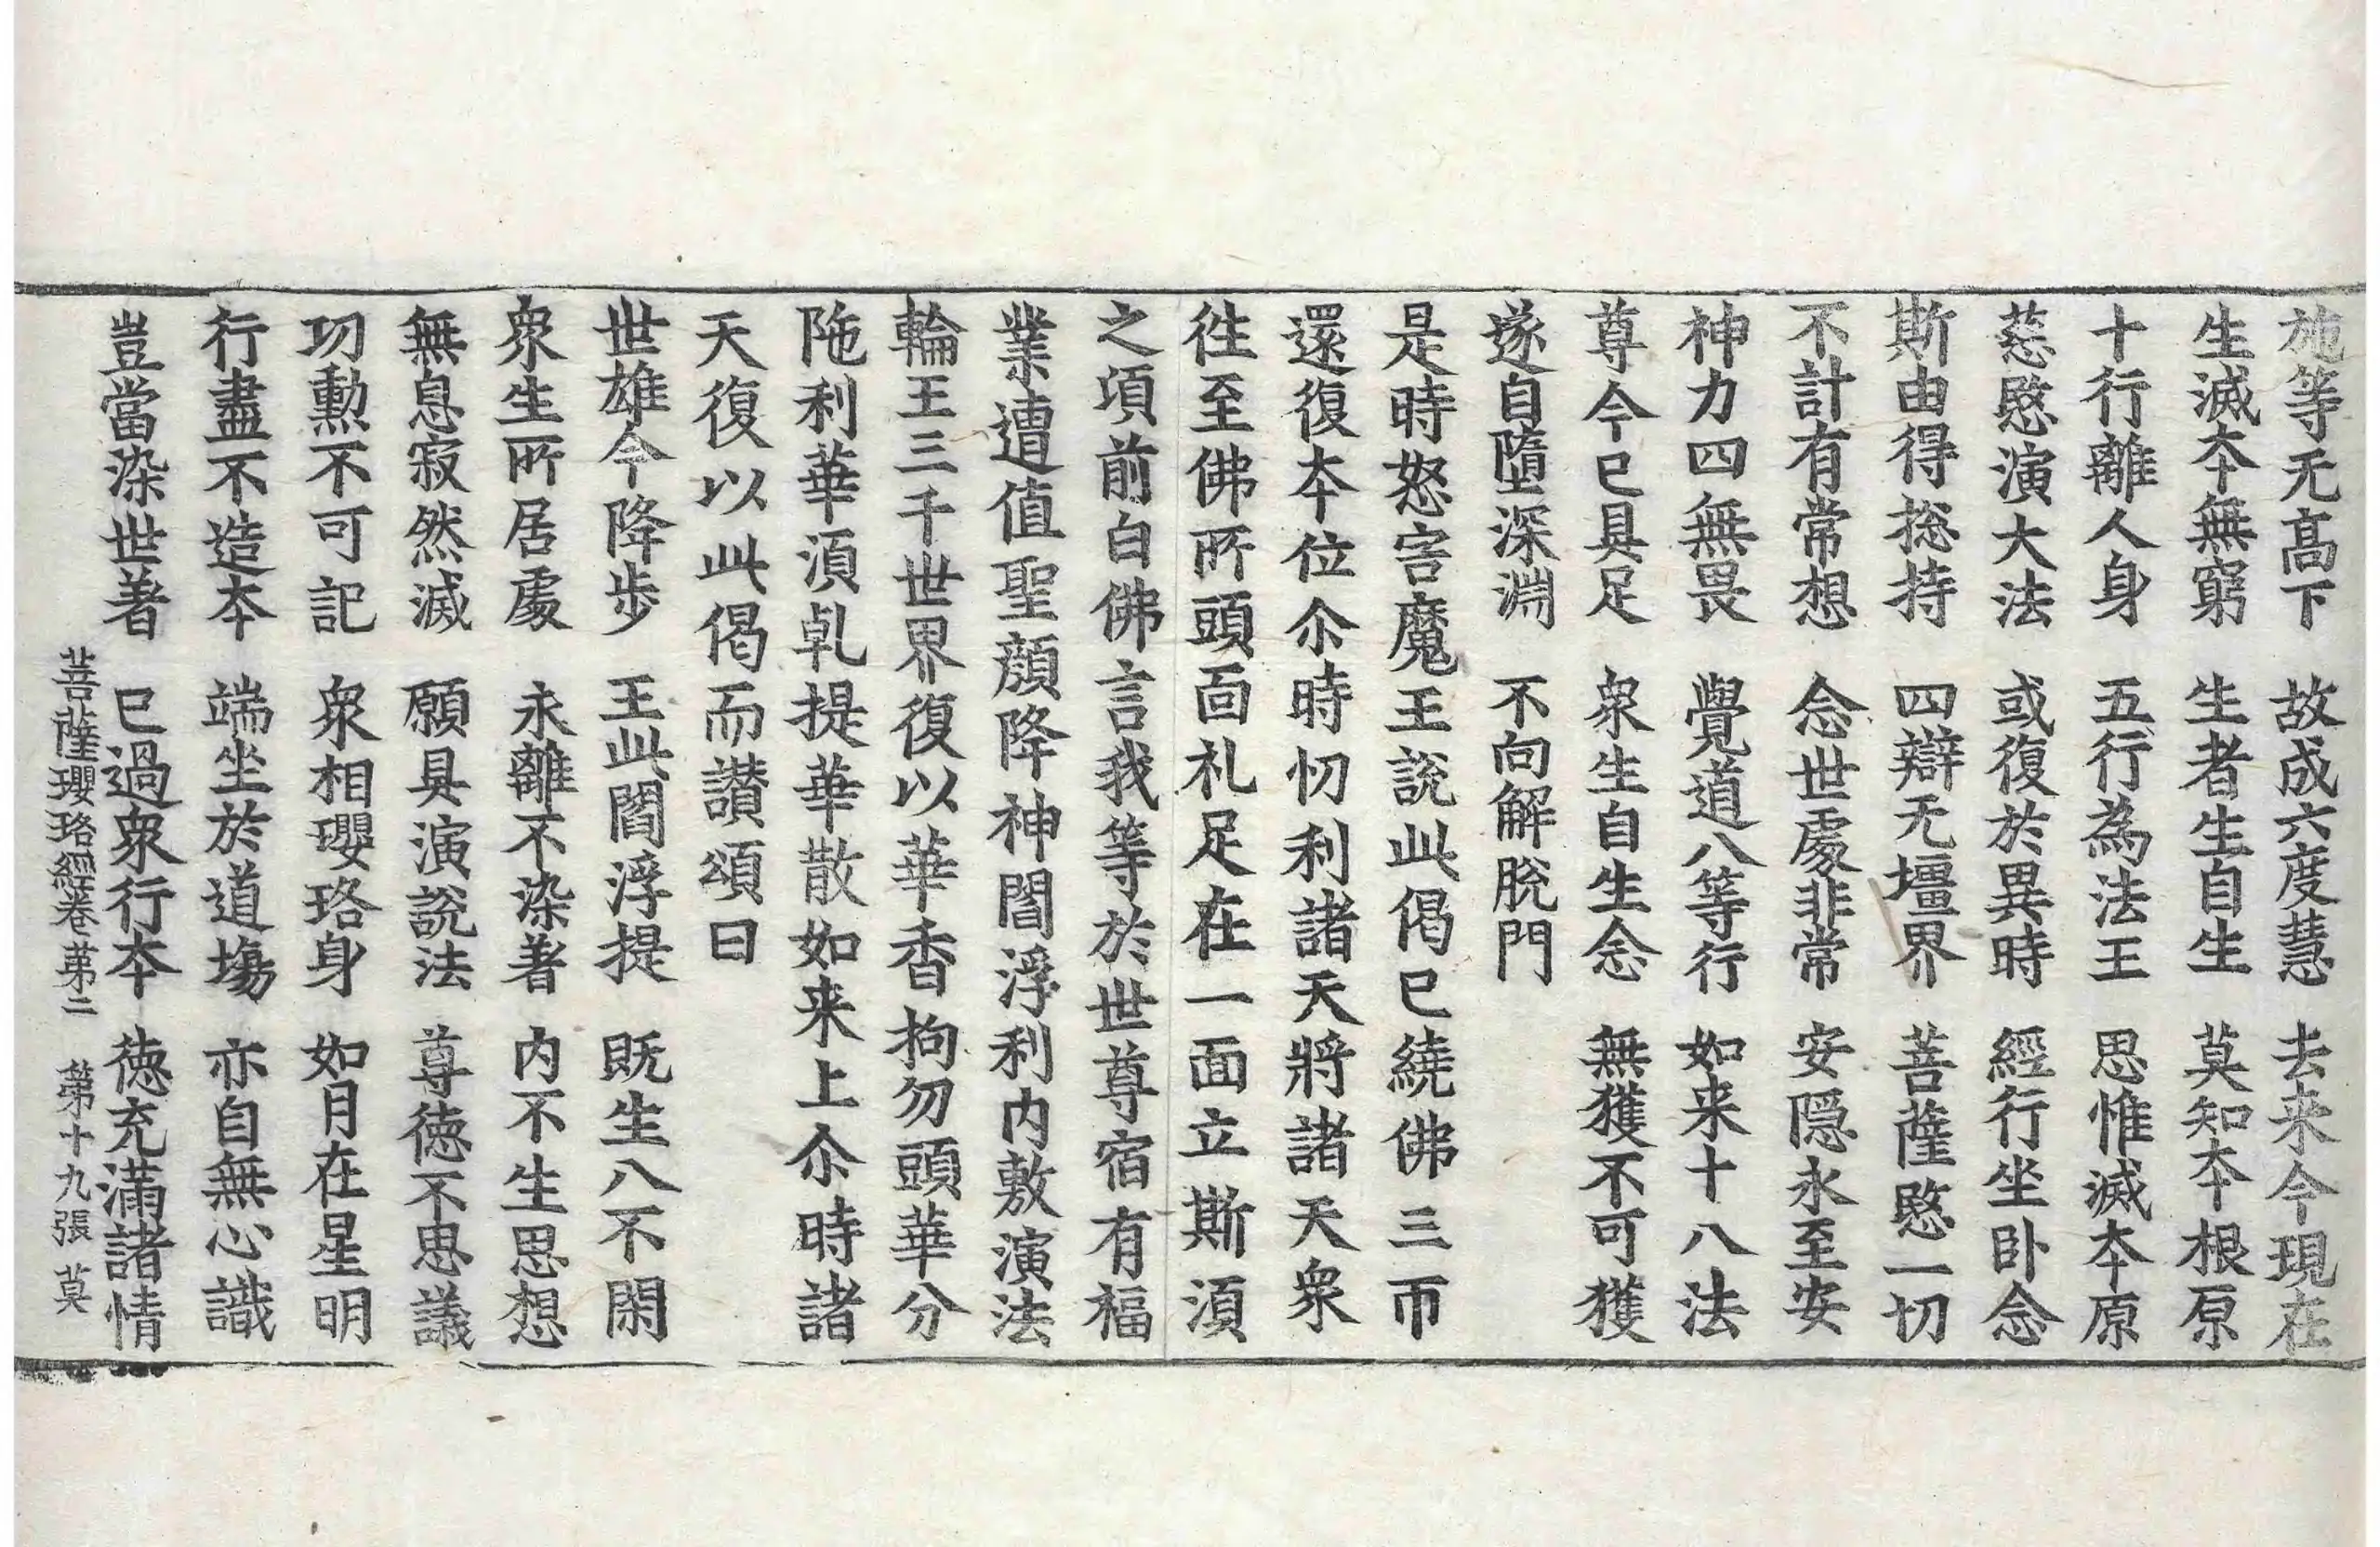 施等无高下　故成六度慧　去来今現在
生滅夲無窮　生者生自生　莫知夲根原
十行離人身　五行為法王　思惟滅夲原
慈愍演大法　或復於異時　經行坐卧念
斯由得捴持　四辯无壃界　菩薩愍一切
不計有常想　念世處非常　安隠永至安
神力四無畏　覺道八等行　如来十八法
尊今已具足　衆生自生念　無獲不可獲
遂自墮深淵　不向解脫門
是時怒害魔王說此偈已繞佛三帀
還復夲位尒時忉利諸天將諸天衆
徃至佛所頭面礼足在一面立斯湏
之頃前白佛言我等於世尊宿有福
業遭值聖顏降神閻浮利内敷演法
輪王三千世界復以華香拘勿頭華分
陁利華湏乹提華散如来上尒時諸
天復以此偈而讃頌曰
世雄今降步　王此閻浮提　既生八不閑
衆生所居處　永離不染著　内不生思想
無息寂然滅　願具演說法　尊德不思議
功勳不可記　衆相瓔珞身　如月在星明
行盡不造夲　端坐於道塲　亦自無心識
豈當染世著　已過衆行夲　德充滿諸情
菩薩瓔珞經卷苐二　第十九張　莫